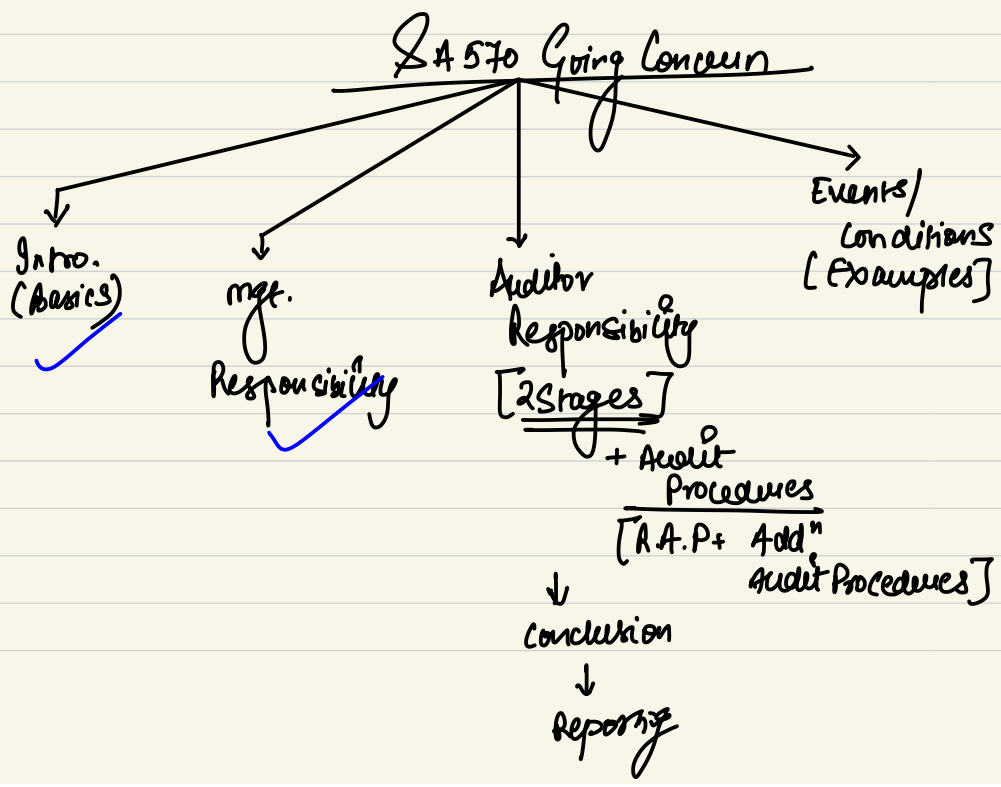 SA 570 Going Concern
Intro.
(Basics)
mgt.
Responsibility
Auditor
Responsibility
[2Stages]
+ Audit
Procedures
[R.A.P+ Addn
Audit Procedures]
↓
Conclusion
↓
Reporting
Events/
Conditions
[Examples]